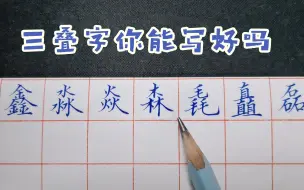 三叠字你能写好吗
鑫淼焱森毳矗磊